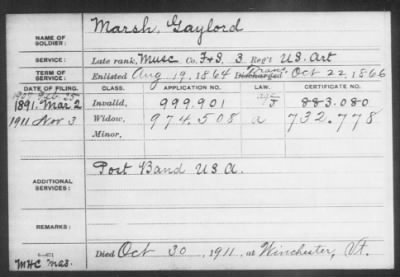 NAME OF SOLDIER: Marsh, Gaylord
SERVICE: Late rank, Musc Co. F&S, 3 Reg't U.S. Art
TERM OF SERVICE: Enlisted Aug 19, 1864 Discharged Trans Oct 22, 1866
DATE OF FILING. CLASS. APPLICATION NO. LAW. CERTIFICATE NO.
1907 Feb 25
1891. Mar 2 Invalid, 999,901 J 883.080
1911 Nov 3 Widow, 974,508 a 732.778
Minor,
ADDITIONAL SERVICES: Post Band U.S.A.
REMARKS:
Died Oct 30, 1911, at Winchester, Vt.
MHC Mas.